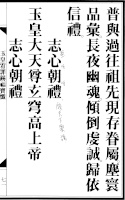 普與過往祖先現存眷屬塵寰
品彙長夜幽魂傾倒虔誠歸依
信禮
志心朝禮
玉皇大天尊玄穹高上帝
志心朝禮